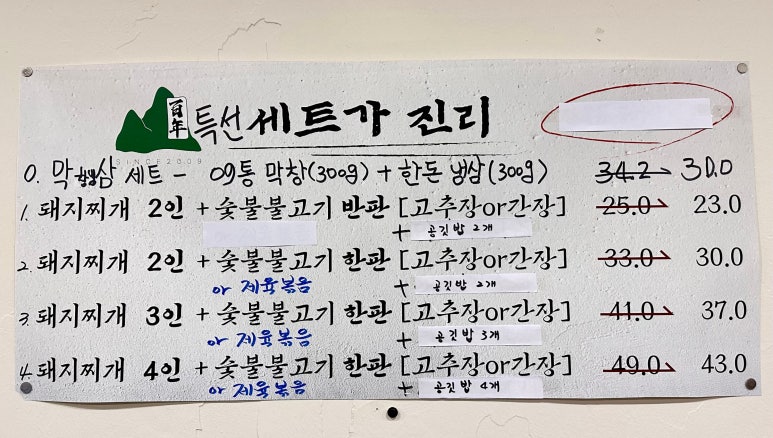 百年 특선 세트가 진리
SINCE2009
0. 막냉삼 세트 - 09통 막창(300g) + 한돈 냉삼(300g) 34.2 30.0
1. 돼지찌개 2인 + 숯불불고기 반판 [고추장or간장] 25.0 23.0
+ 공깃밥 2개
2. 돼지찌개 2인 + 숯불불고기 한판 [고추장or간장] 33.0 30.0
or 제육볶음 + 공깃밥 2개
3. 돼지찌개 3인 + 숯불불고기 한판 [고추장or간장] 41.0 37.0
or 제육볶음 + 공깃밥 3개
4. 돼지찌개 4인 + 숯불불고기 한판 [고추장or간장] 49.0 43.0
or 제육볶음 + 공깃밥 4개